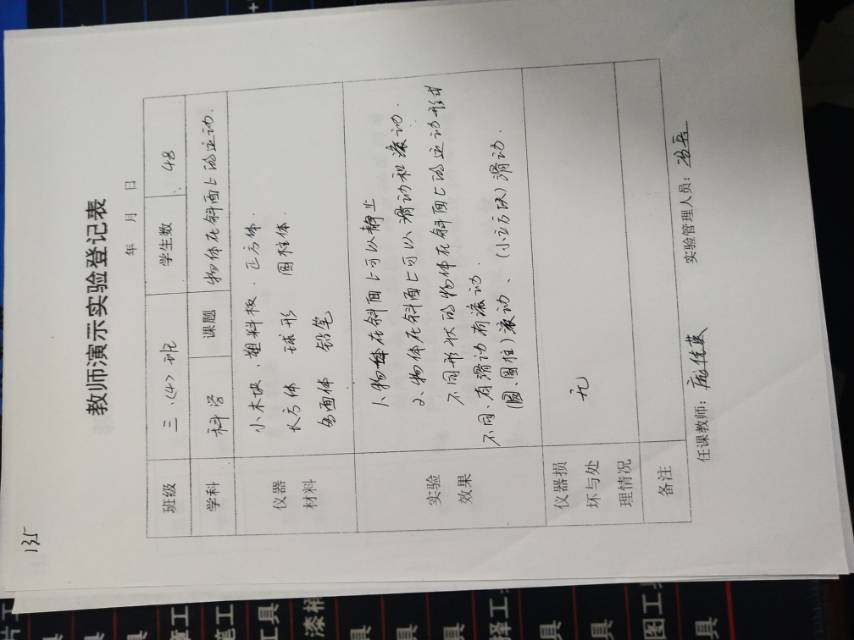 135
教师演示实验登记表
年 月 日
班级 三.(4)班 学生数 48
学科 科学 课题 物体在斜面上的运动.
仪器材料 小木块、塑料板、正方体.
长方体 球形 圆柱体.
多面体 铅笔
实验效果 1、物体在斜面上可以静止
2、物体在斜面上可以滑动和滚动.
不同形状的物体在斜面上的运动形式
不同、有滑动有滚动.
(圆、圆柱)滚动、(小立方块)滑动.
仪器损坏与处理情况 无
备注
任课教师: 实验管理人员:
片工
章工
笔工具
漆桶
择工
具
图工具
具